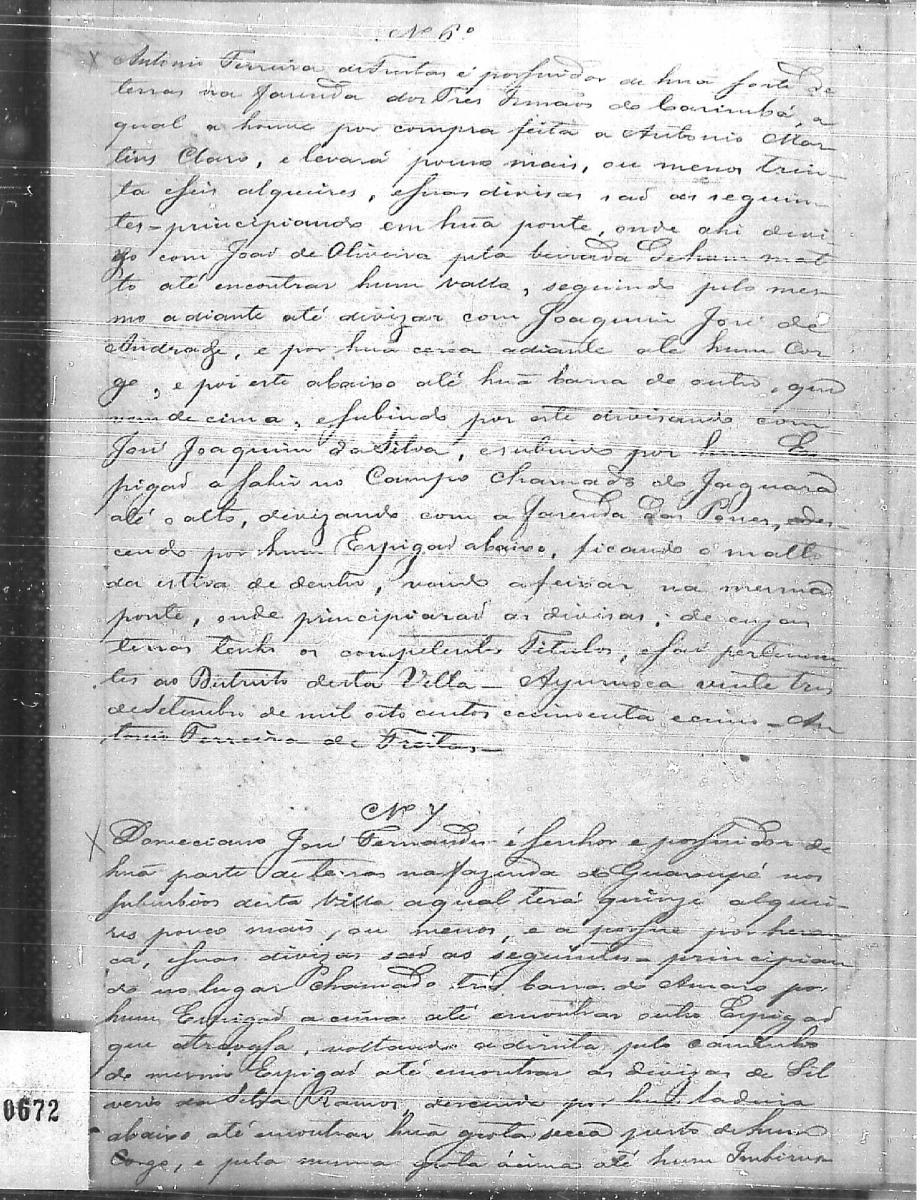 Nº 6º
Antonio Ferreira de Freitas é possuidor de huã sorte de
terras na Fazenda dos Tres Irmãos do Carimbá, a
qual a houve por compra feita a Antonio Mar
tins Claro, e levará pouco mais, ou menos trin-
ta e seis alqueires, e suas divisas saõ as seguin-
tes - principiando em huã ponte, onde ahi devi-
zo com Joaõ de Oliveira pela beirada de hum mat
to até encontrar hum vallo, seguindo pelo mes
mo adiante até divizar com Joaquim José de
Andrade, e por huã cerca adiante até hum Cor
go, e por este abaixo até huã barra de outro, que
vem de cima, e subindo por este divisando com
José Joaquim da Silva, e subindo por hum Es
pigaõ a sahir no Campo chamado do Jaguará
até o alto, devizando com a Fazenda das Posses, e des-
cendo por hum Espigaõ abaixo, ficando o matto
da estiva de dentro, vindo a feixar na mesma
ponte, onde principiaraõ as divisas; de cujas
terras tenho os competentes Titulos, e saõ pertencen
tes ao Districto desta Villa - Ayuruoca vinte tres
de Setembro de mil oito centos e cincoenta e cinco - An
tonio Ferreira de Freitas -
Nº 7
Domeciano José Fernandes é Senhor e possuidor de
huã parte de terras na fazenda do Guaxupé nos
suburbios desta Villa a qual terá quinze alquei-
res pouco mais, ou menos, e a possue por heran
ça, e suas divizas saõ as seguintes - principian
do no lugar chamado tres barras do Amaro por
hum Espigaõ acima até encontrar outro Espigaõ
que atravessa, voltando a direita pelo caminho
do mesmo Espigaõ até encontrar as divizas de Sil
verio da Silva Ramos, descendo por huã ladeira
abaixo até encontrar huã grota secca perto de hum
Corgo, e pela mesma grota acima até hum Imbirus
0672